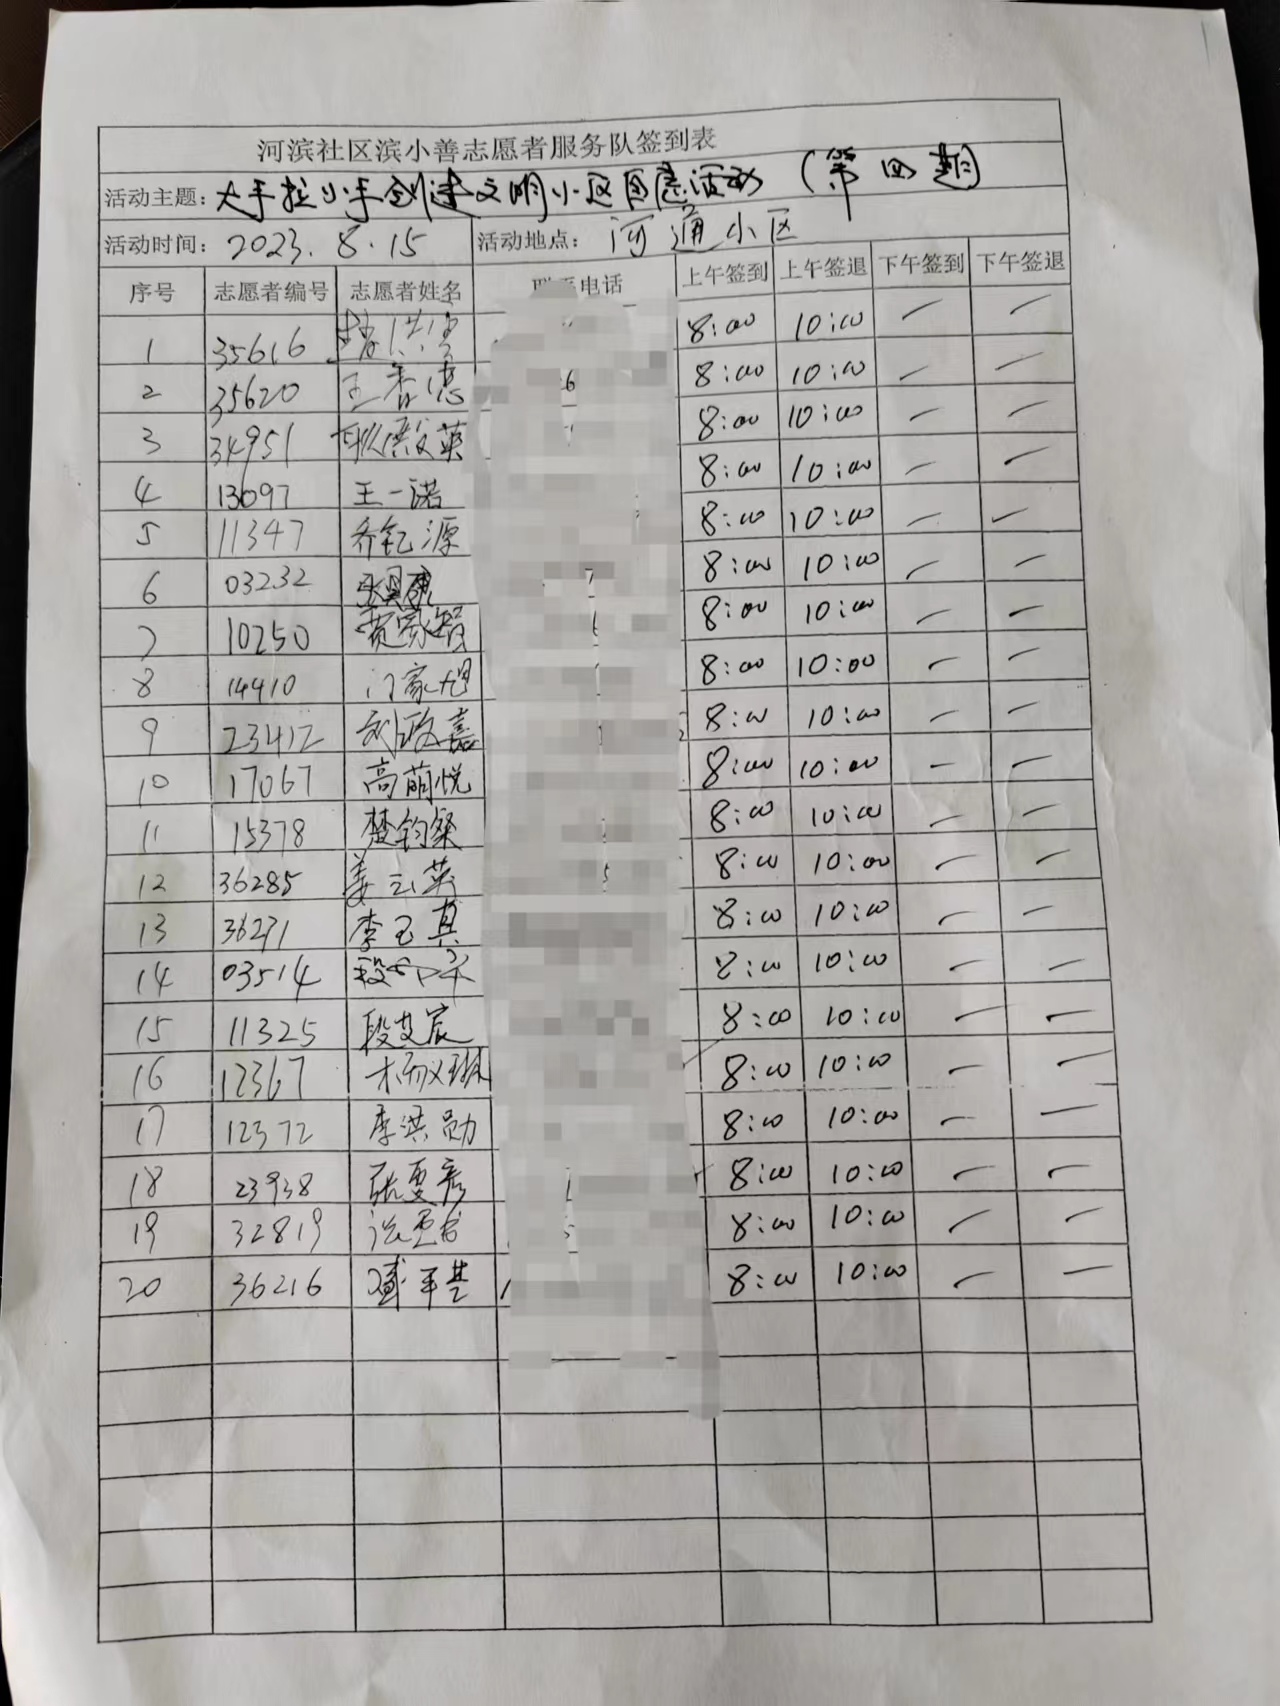 河滨社区滨小善志愿者服务队签到表
活动主题：大手拉小手创建文明小区志愿活动（第四期）
活动时间：2023.8.15 活动地点：河通小区
序号 志愿者编号 志愿者姓名 联系电话 上午签到 上午签退 下午签到 下午签退
1 35616 8:00 10:00 — —
2 35620 王香德 8:00 10:00 — —
3 34951 耿殿英 8:00 10:00 — —
4 13097 王一诺 8:00 10:00 — —
5 11347 乔钇源 8:00 10:00 — —
6 03232 8:00 10:00 — —
7 10250 贾家智 8:00 10:00 — —
8 14410 门家旭 8:00 10:00 — —
9 23412 刘政嘉 8:00 10:00 — —
10 17067 高萌悦 8:00 10:00 — —
11 15378 楚钧粲 8:00 10:00 — —
12 36285 姜云英 8:00 10:00 — —
13 36291 李玉真 8:00 10:00 — —
14 03514 8:00 10:00 — —
15 11325 段艾宸 8:00 10:00 — —
16 12367 8:00 10:00 — —
17 12372 李洪勋 8:00 10:00 — —
18 23938 张夏彦 8:00 10:00 — —
19 32819 8:00 10:00 — —
20 36216 8:00 10:00 — —